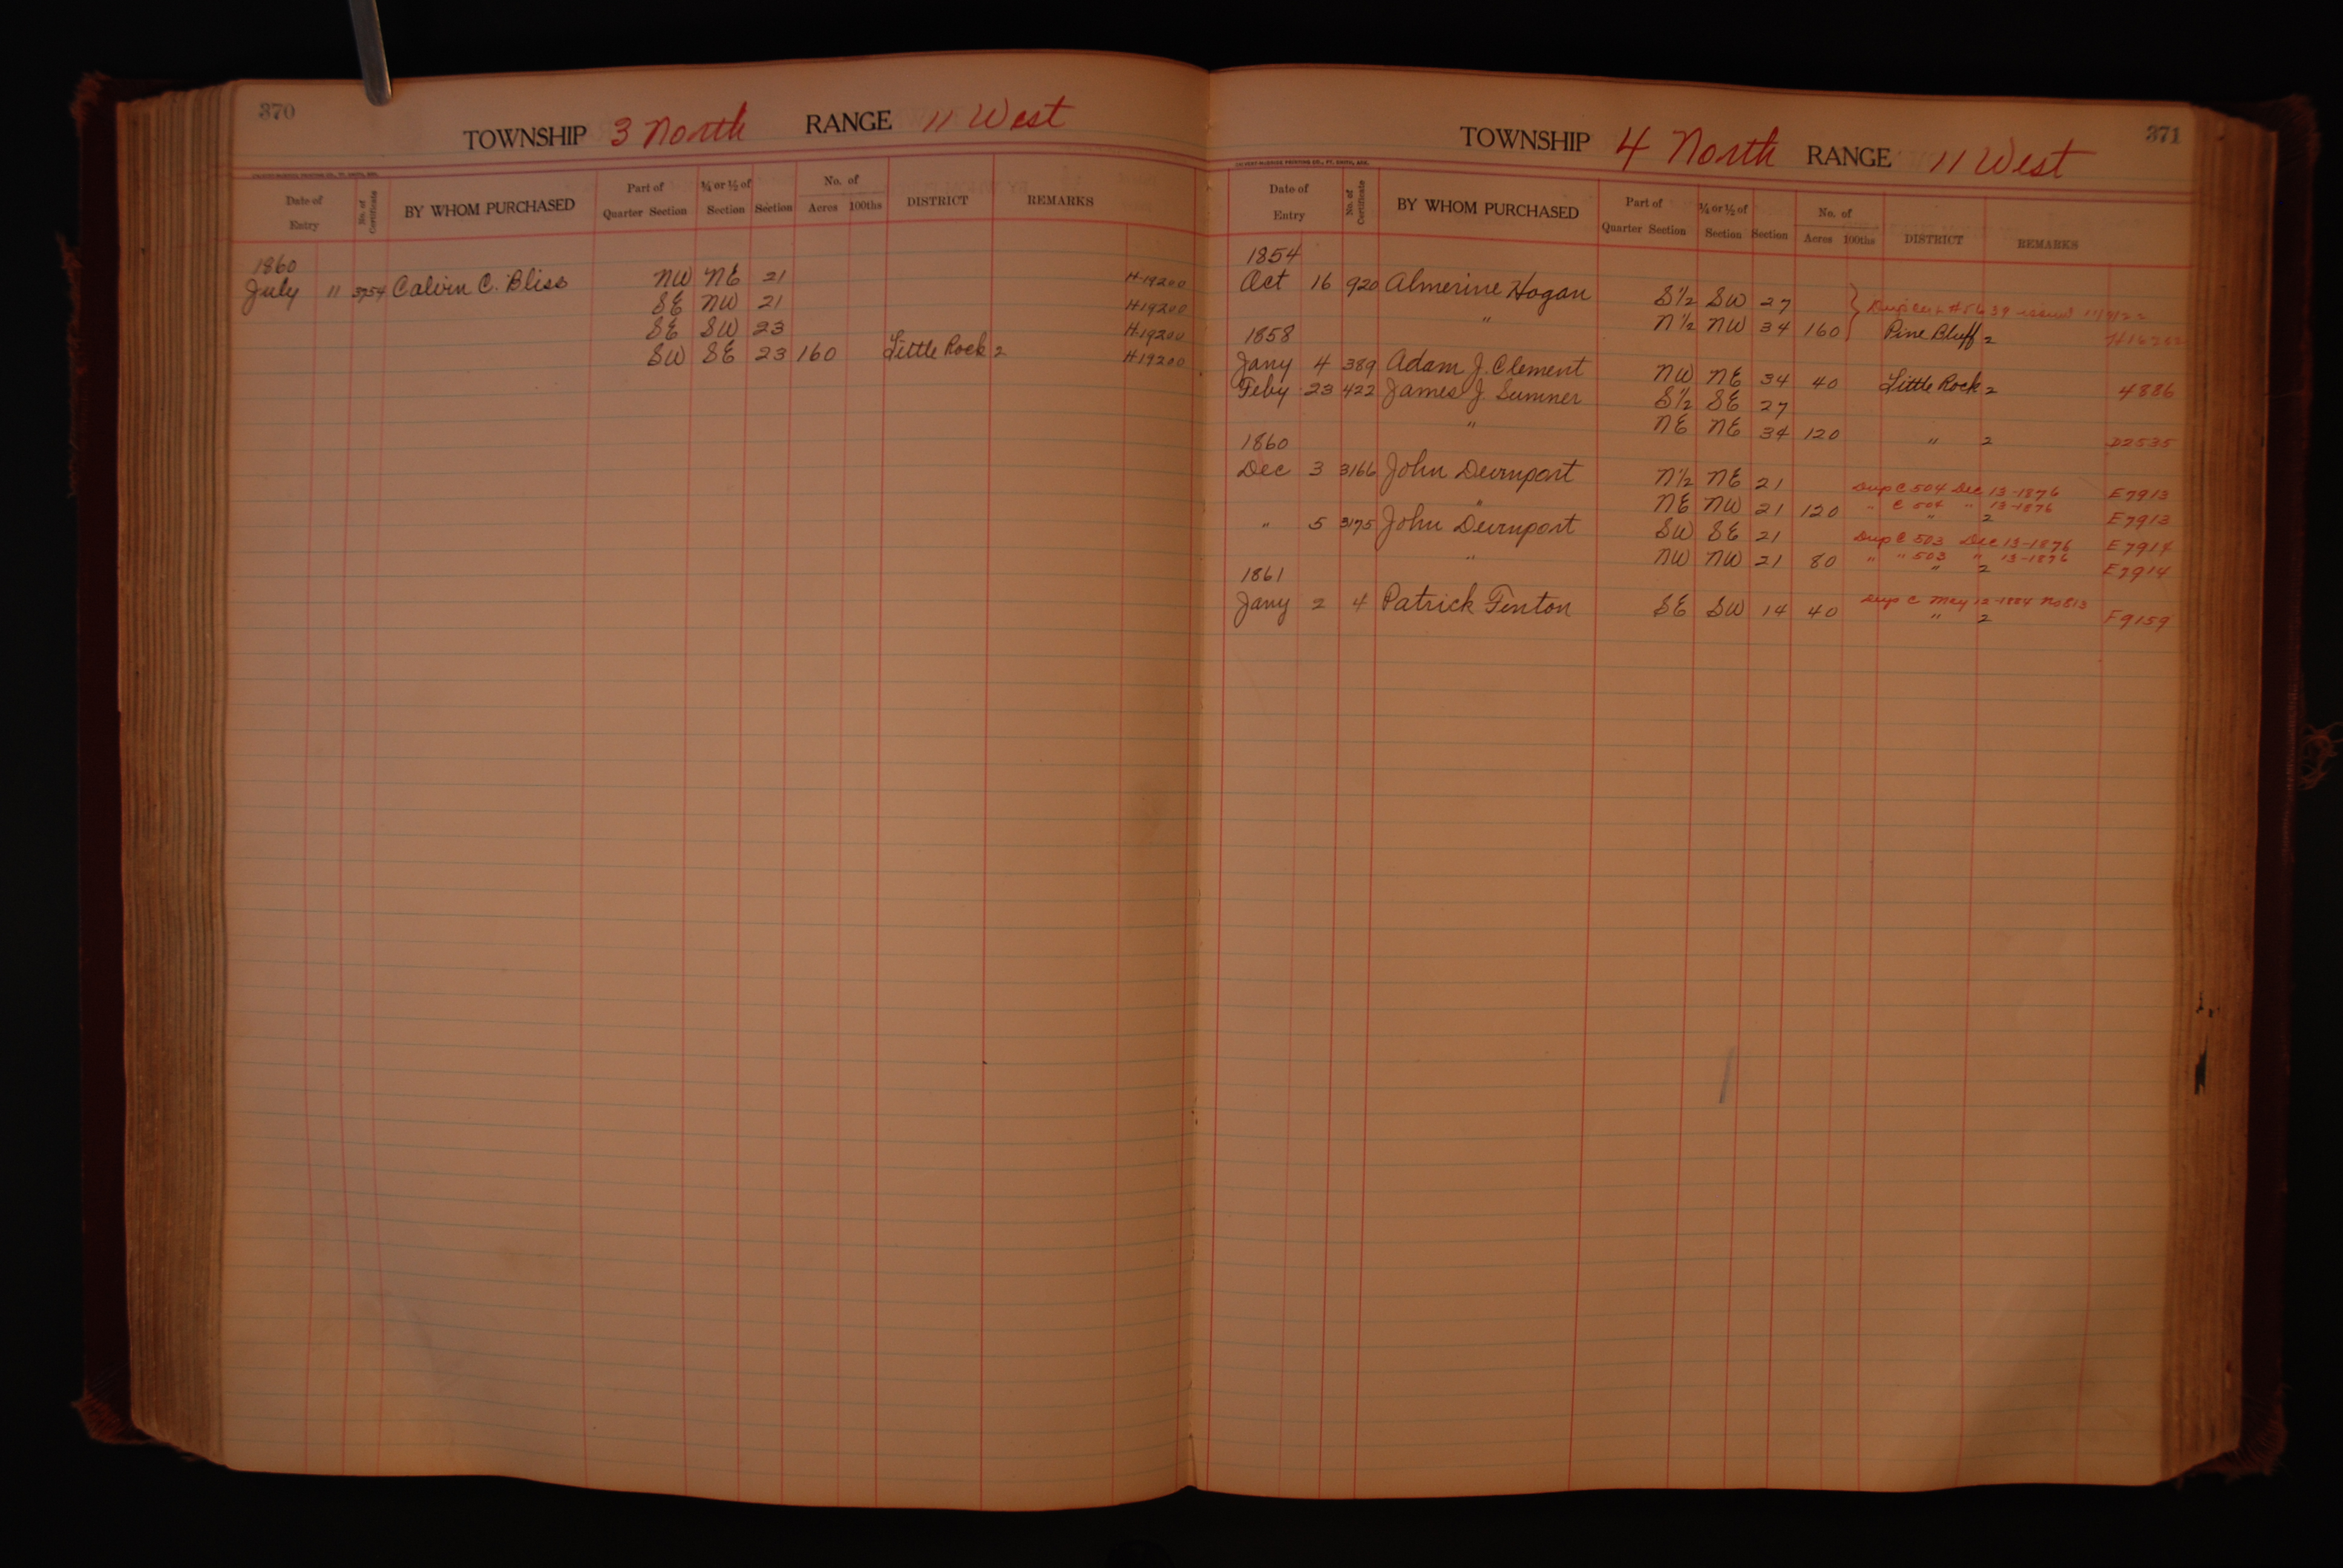 370
TOWNSHIP 3 North RANGE 11 West
Date of Entry No. of Certificate BY WHOM PURCHASED Part of Quarter Section ¼ or ½ of Section Section No. of Acres 100ths DISTRICT REMARKS
1860
July 11 3754 Calvin C. Bliss NW NE 21 H-19200
SE NW 21 H-19200
SE SW 23 H-19200
SW SE 23 160 Little Rock 2 H-19200
371
TOWNSHIP 4 North RANGE 11 West
Date of Entry No. of Certificate BY WHOM PURCHASED Part of Quarter Section ¼ or ½ of Section Section No. of Acres 100ths DISTRICT REMARKS
1854
Oct 16 920 Almerine Hogan S½ SW 27 issued
" N½ NW 34 160 Pine Bluff 2
1858
Jany 4 389 Adam J. Clement NW NE 34 40 Little Rock 2 4886
Feby 23 422 James J. Sumner S½ SE 27
" NE NE 34 120 " 2 D2535
1860
Dec 3 3166 John Devnport N½ NE 21 Dup C 504 Dec 13-1876 E7913
" NE NW 21 120 " C 504 " 13-1876 " 2 E7913
" 5 3175 John Devnport SW SE 21 Dup C 503 Dec 13-1876 E7914
" NW NW 21 80 " " 503 " 13-1876 " 2 E7914
1861
Jany 2 4 Patrick Fenton SE SW 14 40 Dup C May 12-1884 No 813 " 2 F9159